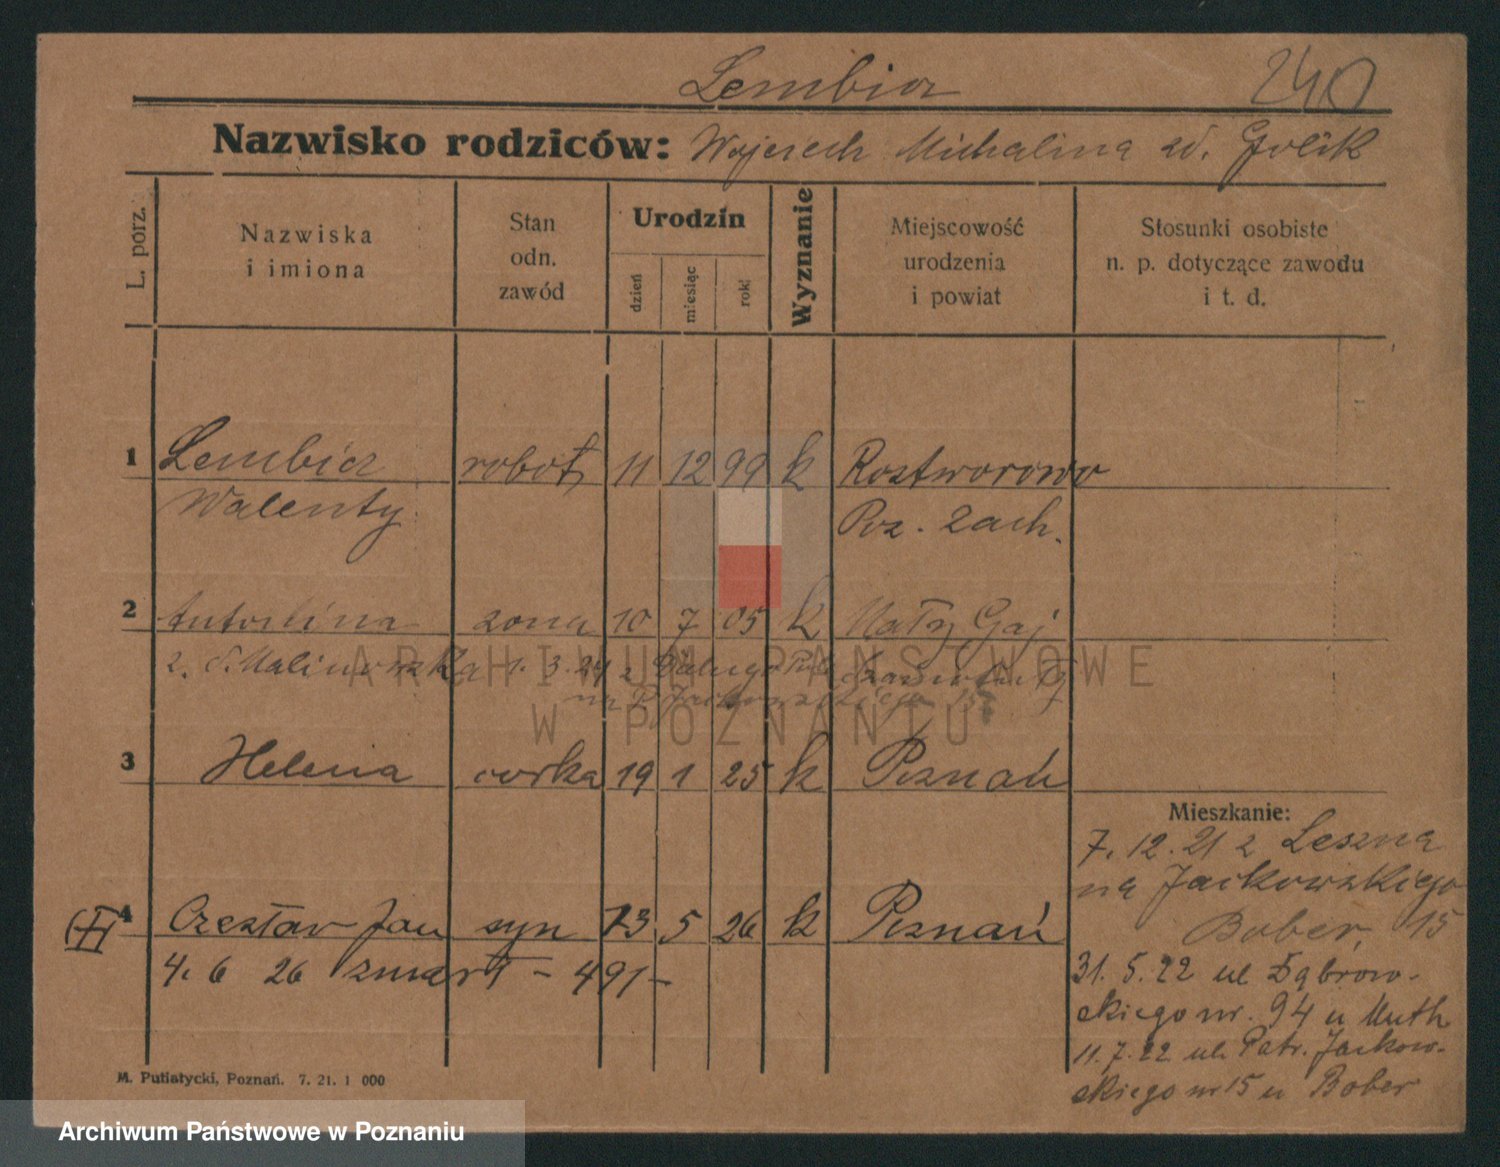 Lembicz 240
Nazwisko rodziców: Wojciech Michalina zd. Golik
L. porz.
Nazwiska
i imiona
Stan
odn.
zawód
Urodzin
dzień
miesiąc
rok
Wyznanie
Miejscowość
urodzenia
i powiat
Stosunki osobiste
n. p. dotyczące zawodu
i t. d.
1 Lembicz robot. 11 12 99 k Rostworowo
Walenty Poz. Zach.
2 Antonina żona 10 7 05 k Mały Gaj
z. d. Malinowska 1. 3. 24 z
na
3 Helena córka 19 1 25 k Poznań
4 Czesław Jan syn 13 5 26 k Poznań
4. 6 26 zmarł - 491 -
Mieszkanie:
7. 12. 21 z Leszna
na Jackowskiego
Bober 15
31. 5. 22 ul Dąbrow-
skiego nr. 94 u Muth
11. 7. 22 ul. Patr. Jackow-
skiego nr 15 u Bober
M. Putiatycki, Poznań. 7. 21. 1 000
ARCHIWUM PAŃSTWOWE
W POZNANIU
Archiwum Państwowe w Poznaniu